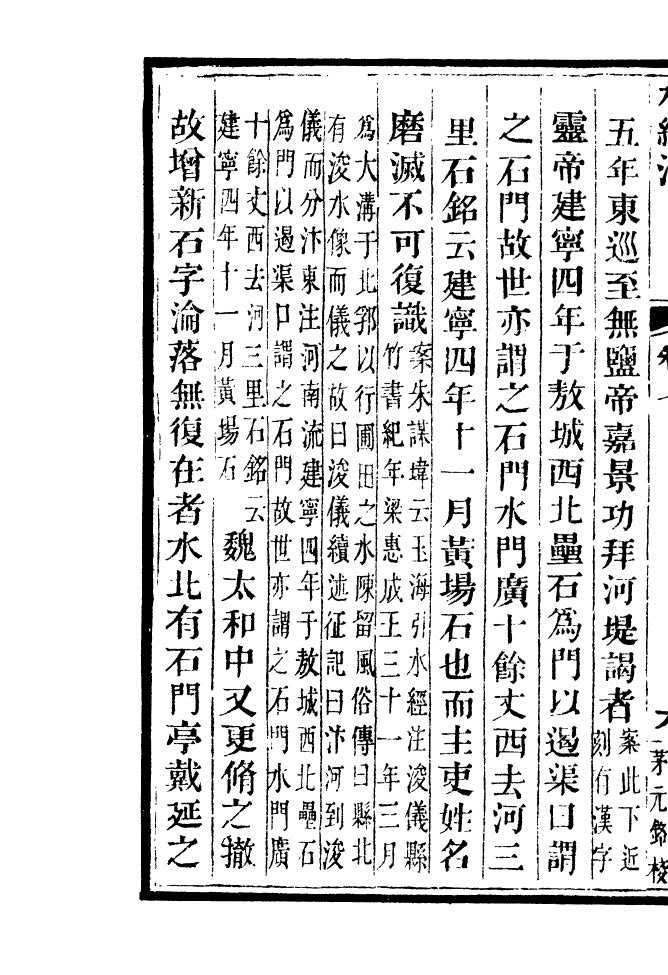 五年東巡至無鹽帝嘉景功拜河堤謁者案此下近
刻有漢字
靈帝建寧四年于敖城西北壘石爲門以遏渠口謂
之石門故世亦謂之石門水門廣十餘丈西去河三
里石銘云建寧四年十一月黃場石也而主吏姓名
磨滅不可復識案朱謀㙔云玉海引水經注浚儀縣
竹書紀年梁惠成王三十一年三月
爲大溝于北郛以行圃田之水陳留風俗傳曰縣北
有浚水像而儀之故曰浚儀續述征記曰汴河到浚
儀而分汴東注河南流建寧四年于敖城西北壘石
爲門以遏渠口謂之石門故世亦謂之石門水門廣
十餘丈西去河三里石銘云
建寧四年十一月黃場石
魏太和中又更脩之撤
故增新石字淪落無復在者水北有石門亭戴延之
茅元銘校